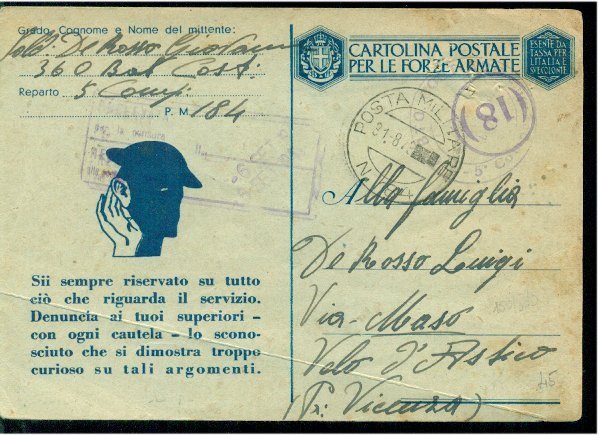 Grado, Cognome e Nome del mittente:
Sold. De Rosso Giovanni
360 Bat Cost.
Reparto 5 Comp.
P. M. 184
per la censura
Sii sempre riservato su tutto
ciò che riguarda il servizio.
Denuncia ai tuoi superiori -
con ogni cautela - lo scono-
sciuto che si dimostra troppo
curioso su tali argomenti.
CARTOLINA POSTALE
PER LE FORZE ARMATE
ESENTE DA
TASSA PER
L'ITALIA E
POSTA MILITARE
N
31.8.4
(18)
Alla famiglia
De Rosso Luigi
Via Maso
Velo d'Astico
(Pr: Vicenza)